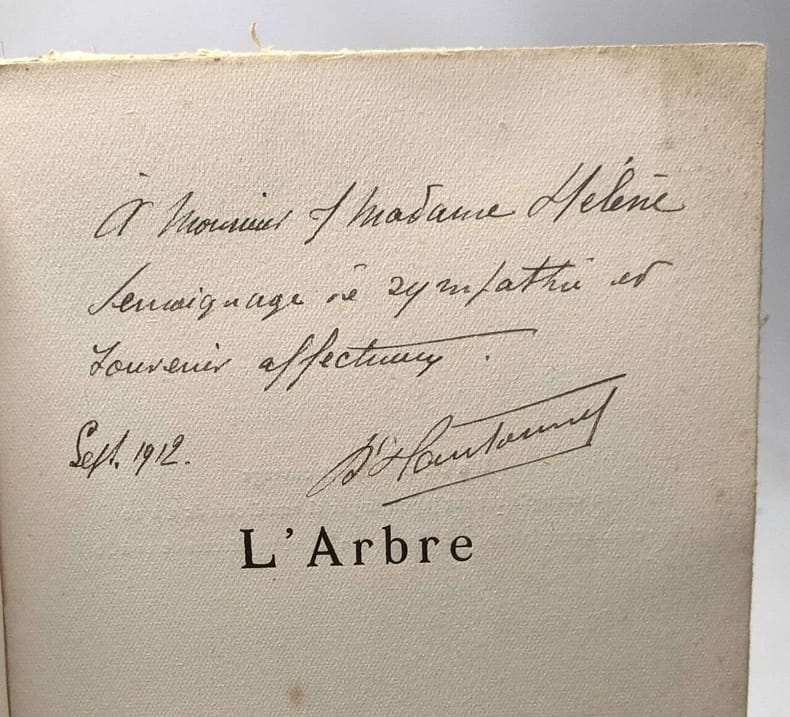 À Monsieur & Madame Hélène
temoignage de sympathie et
souvenir affectueux.
Sept. 1912.
L'Arbre